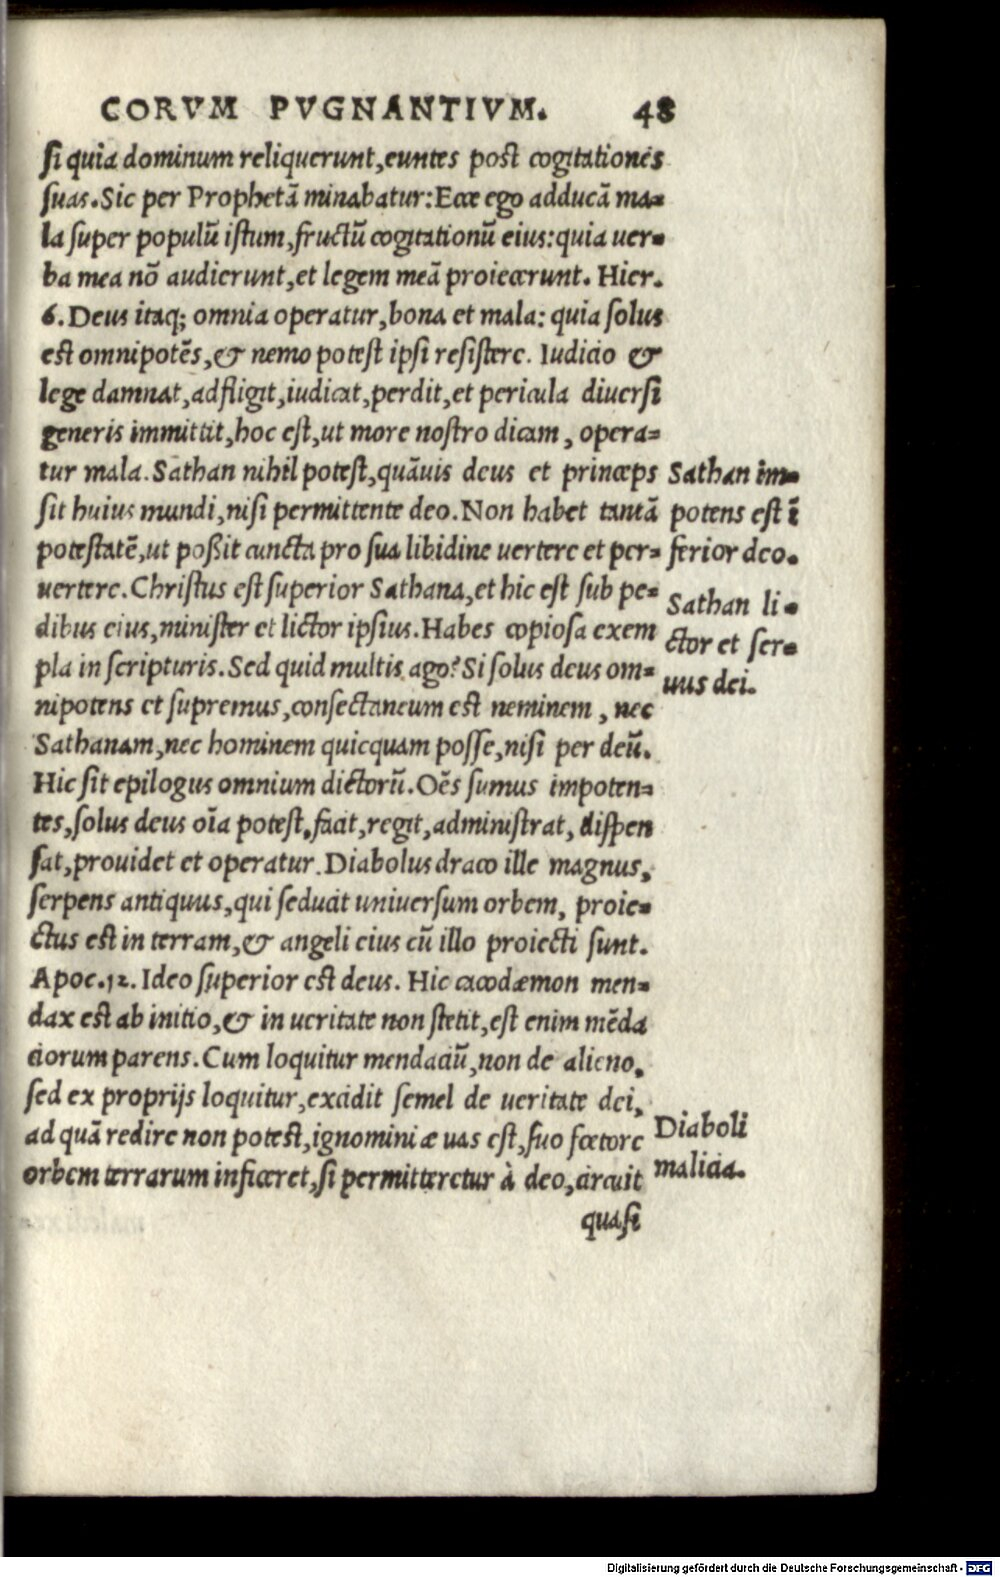 CORVM PVGNANTIVM. 48
si quia dominum reliquerunt, euntes post cogitationes
suas. Sic per Prophetā minabatur: Ecce ego adducā ma-
la super populū istum, fructū cogitationū eius: quia uer-
ba mea nō audierunt, et legem meā proiecerunt. Hier.
6. Deus itaq; omnia operatur, bona et mala: quia solus
est omnipotēs, & nemo potest ipsi resistere. Iudicio &
lege damnat, adfligit, iudicat, perdit, et pericula diuersi
generis immittit, hoc est, ut more nostro dicam, opera-
tur mala. Sathan nihil potest, quāuis deus et princeps
sit huius mundi, nisi permittente deo. Non habet tantā
potestatē, ut poßit cuncta pro sua libidine uertere et per-
uertere. Christus est superior Sathana, et hic est sub pe-
dibus eius, minister et lictor ipsius. Habes copiosa exem
pla in scripturis. Sed quid multis ago? Si solus deus om-
nipotens et supremus, consectaneum est neminem, nec
Sathanam, nec hominem quicquam posse, nisi per deū.
Hic sit epilogus omnium dictorū. Oēs sumus impoten-
tes, solus deus oīa potest, facit, regit, administrat, dispen
sat, prouidet et operatur. Diabolus draco ille magnus,
serpens antiquus, qui seducit uniuersum orbem, proie-
ctus est in terram, & angeli eius cū illo proiecti sunt.
Apoc. 12. Ideo superior est deus. Hic cacodæmon men-
dax est ab initio, & in ueritate non stetit, est enim mēda
ciorum parens. Cum loquitur mendaciū, non de alieno,
sed ex proprijs loquitur, excidit semel de ueritate dei,
ad quā redire non potest, ignominiæ uas est, suo fœtore
orbem terrarum inficeret, si permitteretur à deo, circuit
quasi
Sathan im-
potens est ī
ferior deo.
Sathan li-
ctor et ser-
uus dei.
Diaboli
malicia.
Digitalisierung gefördert durch die Deutsche Forschungsgemeinschaft - DFG